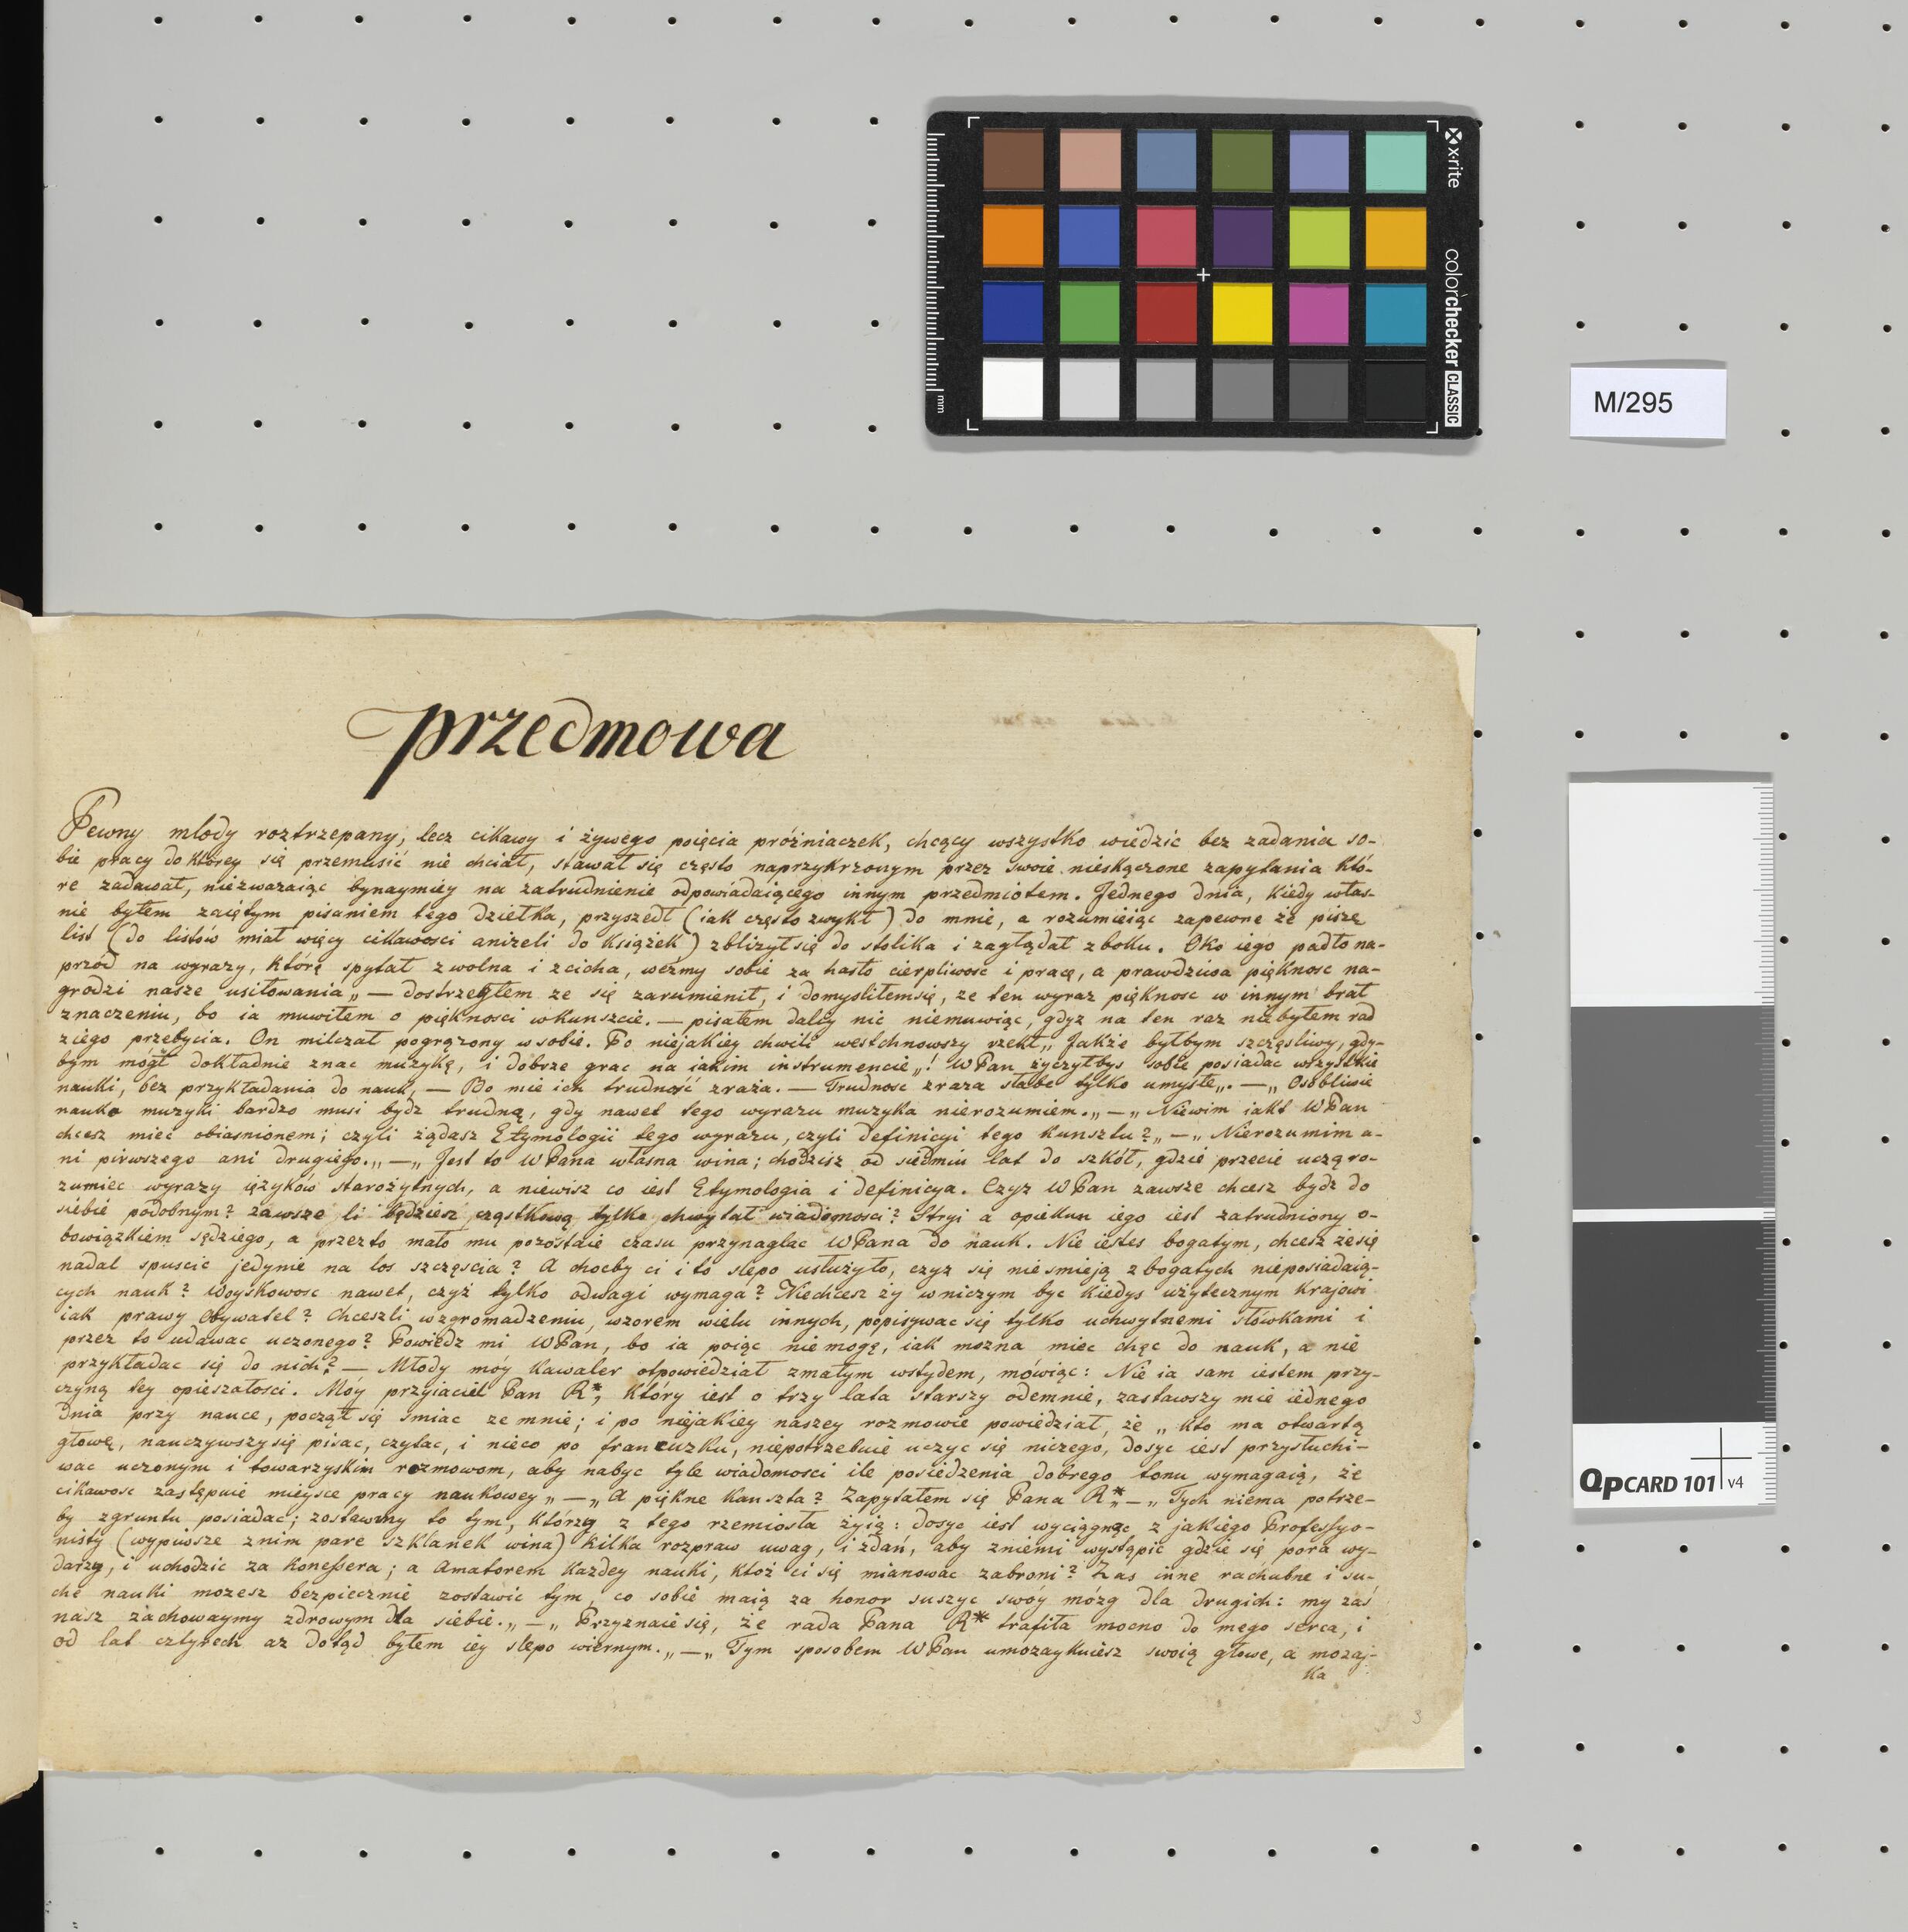 x·rite
colorchecker CLASSIC
mm
M/295
przedmowa
Pewny mlody roztrzepany, lecz cikawy i żywego poięcia próżniaczek, chcący wszystko wiedzić bez zadania so-
bie pracy do ktorey się przemusić nie chciał, stawał się często naprzykrzonym przez swoie nieskączone zapytania któ-
re zadawał, niezwazaiąc bynaymiey na zatrudnienie odpowiadaiącego innym przedmiotem. Jednego dnia, kiedy włas-
nie byłem zaiętym pisaniem tego dziełka, przyszedł (iak często zwykł) do mnie, a rozumieiąc zapewne że piszę
list (do listów miał więcy cikawosci anizeli do książek) zbliżył się do stolika i zaglądał z boku. Oko iego padło na-
przód na wyrazy, którę spytał zwolna i zcicha, weźmy sobie za hasło cierpliwosc i pracę, a prawdziwa pięknosc na-
grodzi nasze usiłowania„ — dostrzegłem ze się zarumienił, i domysliłemsię, ze ten wyraz pięknosc w innym brał
znaczeniu, bo ia muwiłem o pięknosci wkunszcie. — pisałem daley nic niemuwiąc, gdyz na ten raz niebyłem rad
ziego przebycia. On milczał pogrązony wsobie. Po niejakiey chwili westchnowszy rzekł„ Jakże byłbym szczęsliwy, gdy-
bym mógł dokładnie znac muzykę, i dobrze grac na iakim instrumencie„! WPan życzyłbys sobie posiadac wszystkie
nauki, bez przykładania do nauk, — Bo mie ich trudność zraża. — Trudnosc zraza słabe tylko umysłe„. —„ Osobliwie
nauka muzyki bardzo musi bydz trudną, gdy nawet tego wyrazu muzyka nierozumiem.„ —„ Niewim iakt WPan
chcesz miec obiasnionem; czyli żądasz Etymologii tego wyrazu, czyli definicyi tego kunsztu?„ —„ Nierozumim a-
ni pirwszego ani drugiego.„ —„ Jest to WPana własna wina; chodzisz od siedmiu lat do szkół, gdzie przecie ucząro-
zumiec wyrazy ięzyków starożytnych, a niewisz co iest Etymologia i definicya. Czyz WPan zawsze chcesz bydz do
siebie podobnym? zawsze li będziesz cząstkową tylko chwytał wiadomosci? Stryi a opiekun iego iest zatrudniony o-
bowiązkiem sędziego, a przezto mało mu pozostaie czasu przynaglac WPana do nauk. Nie iestes bogatym, chcesz żesię
nadal spuscic jedynie na los szczęscia? A chocby ci i to slepo usłużyło, czyz się niesmieją z bogatych nieposiadaią-
cych nauk? Woyskowosc nawet, czyż tylko odwagi wymaga? Niechcesz ży wniczym byc kiedys użytecznym krajowi
iak prawy obywatel? Chceszli wzgromadzeniu, wzorem wielu innych, popisywac się tylko uchwytnemi słówkami i
przez to udawac uczonego? Powiedz mi WPan, bo ia poiąc niemogę, iak mozna miec chęc do nauk, a nie
przykładac się do nich? — Młody móy kawaler otpowiedział zmałym wstydem, mówiąc: Nie ia sam iestem przy-
czyną tey opieszałosci. Móy przyiaciel Pan R*, który iest o trzy lata starszy odemnie, zastawszy mie iednego
dnia przy nauce, począł się smiac ze mnie; i po niejakiey naszey rozmowie powiedział, że „ kto ma otwartą
głowę, nauczywszy się pisac, czytac, i nieco po francuzku, niepotrzebuie uczyc się niczego, dosyc iest przysłuchi-
wac uczonym i towarzyskim rozmowom, aby nabyc tyle wiadomosci ile posiedzenia dobrego tonu wymagaią, że
cikawosc zastępuie mieysce pracy naukowey„ —„ A piękne kunszta? Zapytałem się Pana R*„ —„ Tych niema potrze-
by zgruntu posiadac; zostawmy to tym, którzy z tego rzemiosła żyią: dosyc iest wyciągnąc z jakiego Professyo-
nisty (wypiwsze znim pare szklanek wina) kilka rozpraw uwag, i zdań, aby zniemi wystąpic gdzie się pora wy-
darzy, i uchodzic za konessera; a Amatorem każdey nauki, ktoż ci się mianowac zabroni? Zas inne rachubne i su-
che nauki mozesz bezpiecznie zostawic tym, co sobie maią za honor suszyc swóy mózg dla drugich: my zaś
nasz zachowaymy zdrowym dla siebie.„ —„ Przyznaie się, że rada Pana R* trafiła mocno do mego serca, i
od lat cztyrech az dotąd byłem iey slepo wiernym.„ —„ Tym sposobem WPan umozaykuiesz swoią głowe, a mozaj-
ka
3
QpCARD 101 v4